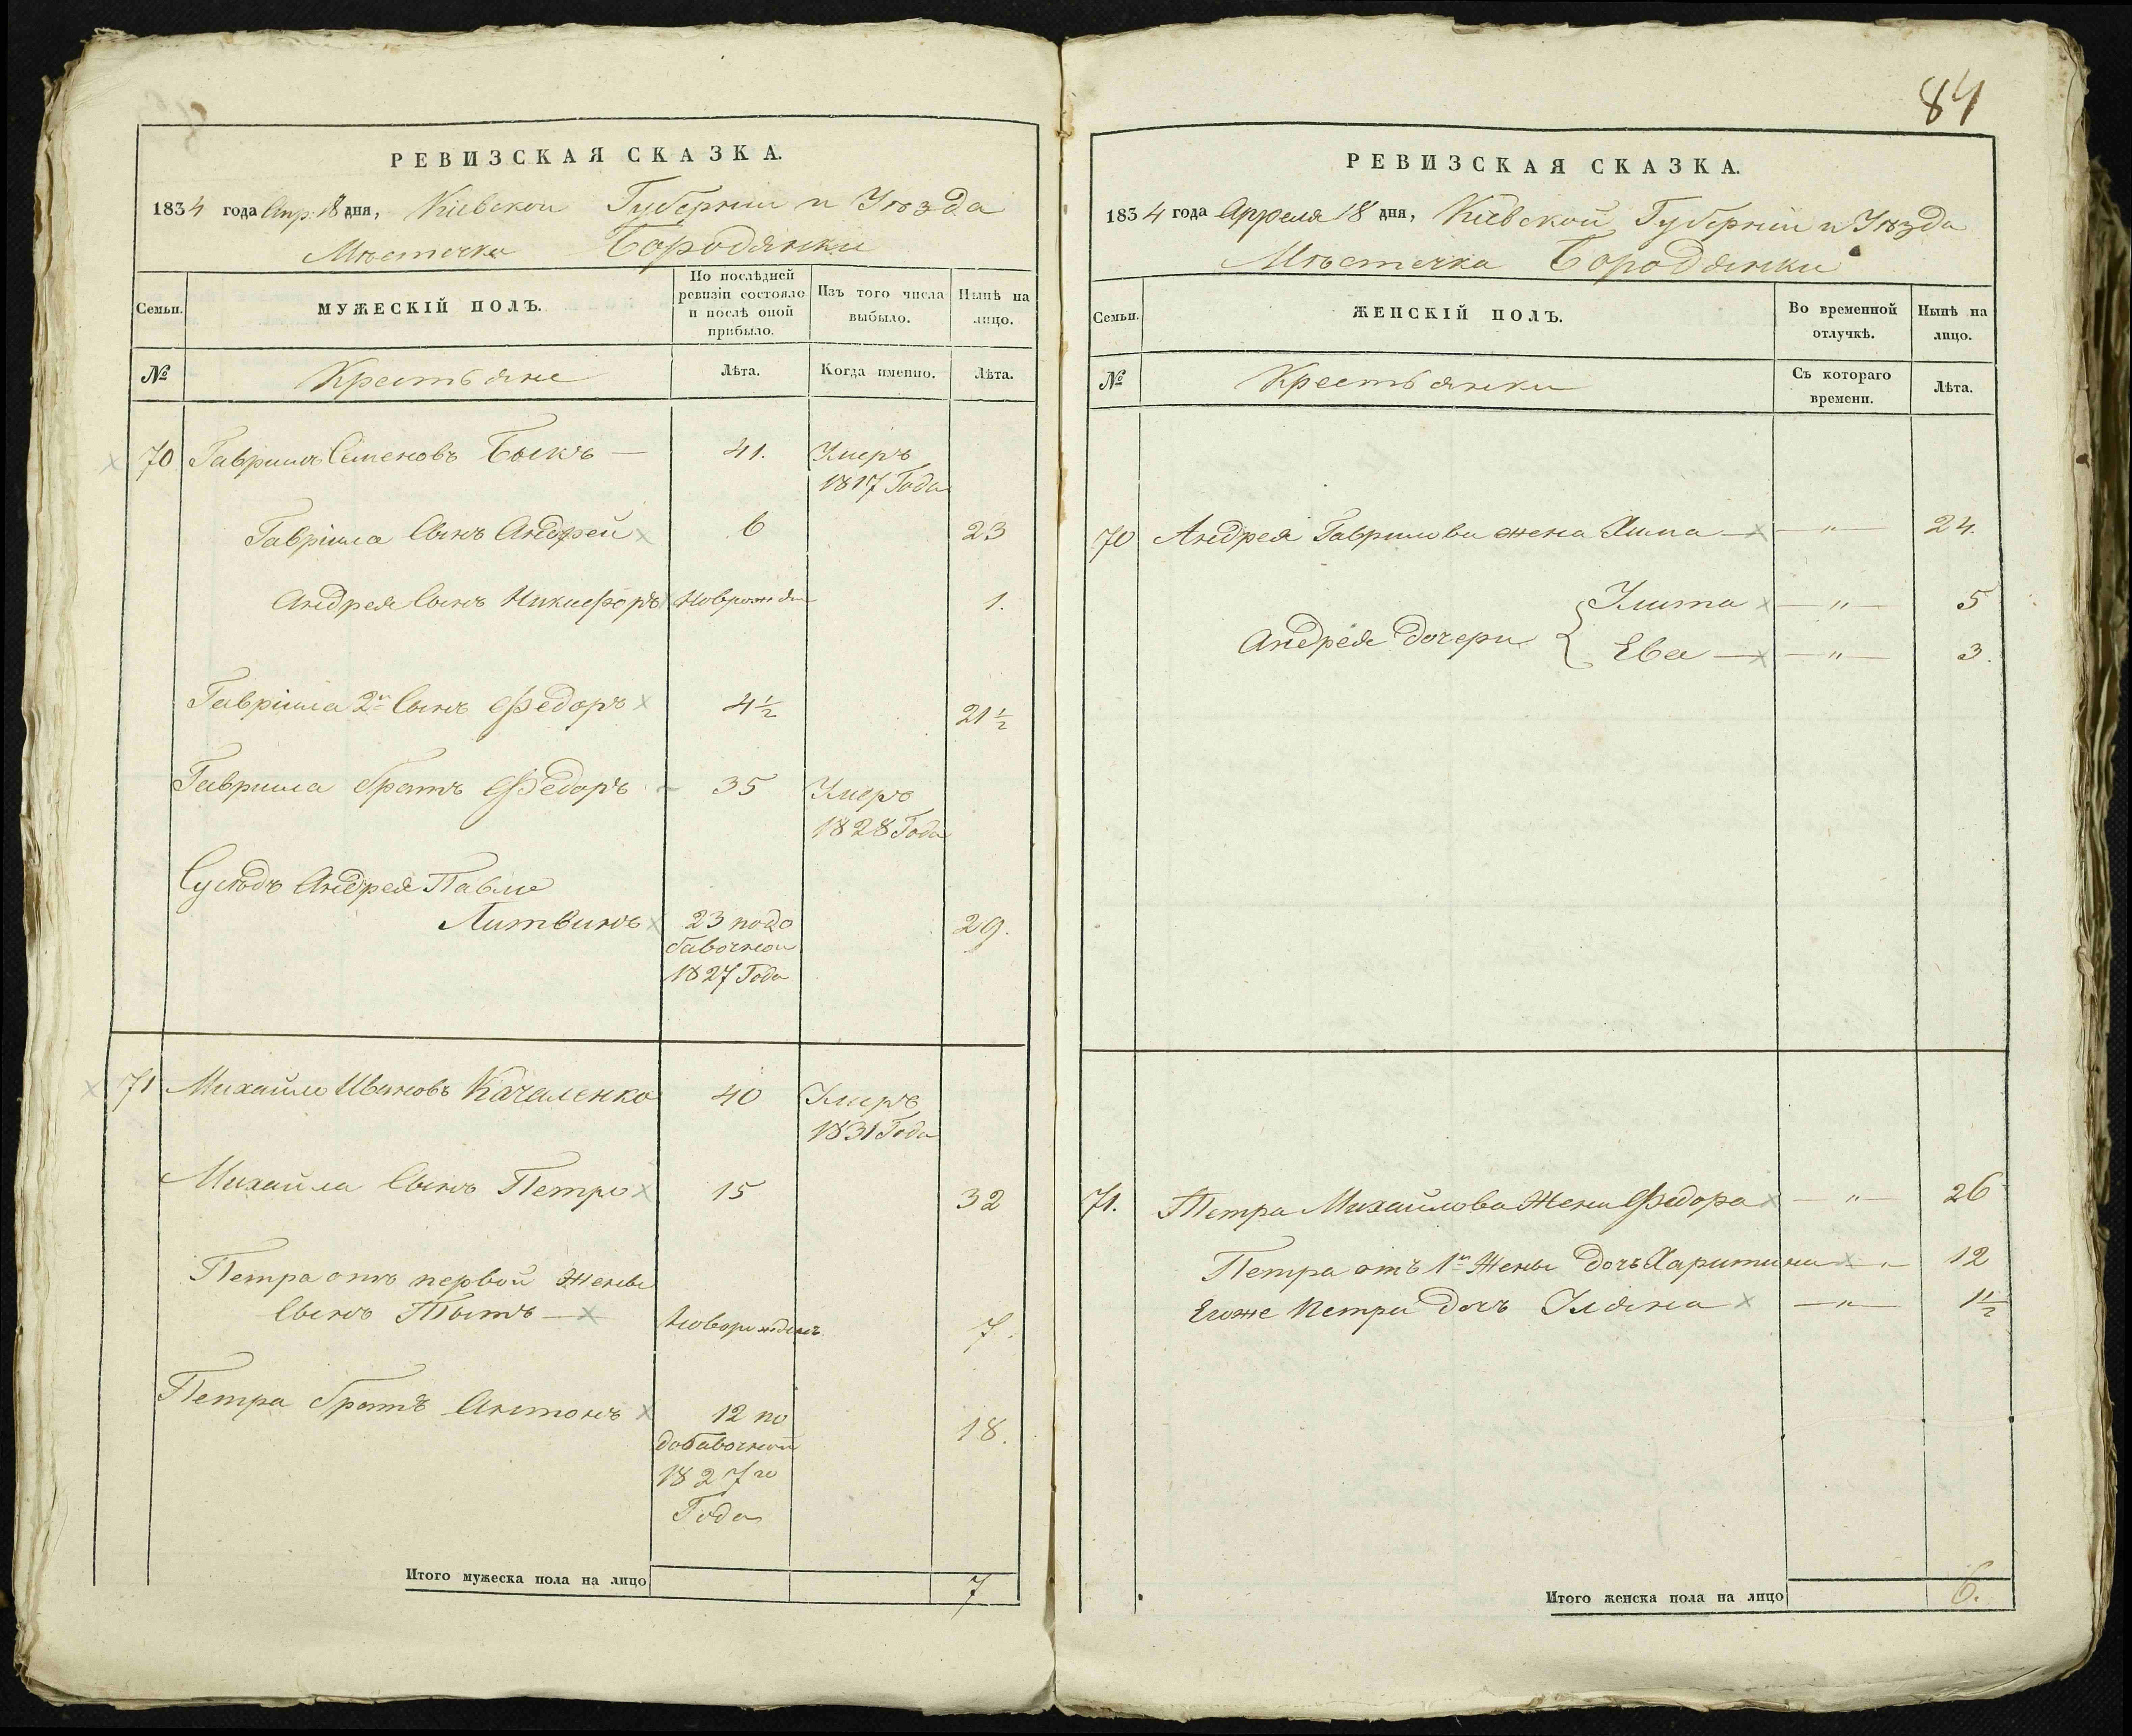 РЕВИЗСКАЯ СКАЗКА.
1834 года Апр. 18 дня, Кіевской Губерніи и Уѣзда
Мѣстечка Бородянки
Семьи.
МУЖЕСКІЙ ПОЛЪ.
По послѣдней ревизіи состояло и послѣ оной прибыло.
Изъ того числа выбыло.
Нынѣ на лицо.
№
Крестьяне
Лѣта.
Когда именно.
Лѣта.
70 Гаврило Семеновъ Быкъ — 41. Умеръ
1817 Года
Гавріила Сынъ Андрей 6 23
Андрея Сынъ Никифоръ Новрожден 1.
Гавріила 2й Сынъ Федоръ 4½ 21½
Гаврила братъ Федоръ 35 Умеръ
1828 Года
Сусѣдъ Андрея Павло
Литвинъ 23 по до 29.
бавочной
1827 Года
71 Михайло Ивановъ Качаленко 40 Умеръ
1831 Года
Михайла Сынъ Петро 15 32
Петра отъ первой Жены
Сынъ Тытъ — Новорожденъ 7.
Петра братъ Антонъ 12 по 18.
добавочной
1827го
Года
Итого мужеска пола на лицо 7
84
РЕВИЗСКАЯ СКАЗКА.
1834 года Апреля 18 дня, Кіевской Губерніи и Уѣзда
Мѣстечка Бородянки
Семьи.
ЖЕНСКІЙ ПОЛЪ.
Во временной отлучкѣ.
Нынѣ на лицо.
№
Крестьянки
Съ котораго времени.
Лѣта.
70 Андрея Гаврилова жена Хима — — " — 24.
Улита — " — 5
Андрея дочери
Ева — — " — 3.
71. Петра Михайлова Жена Федора — " — 26
Петра отъ 1й Жены дочь Харитина — " — 12
Егоже Петра дочь Уляна — " — 1½
Итого женска пола на лицо 6.